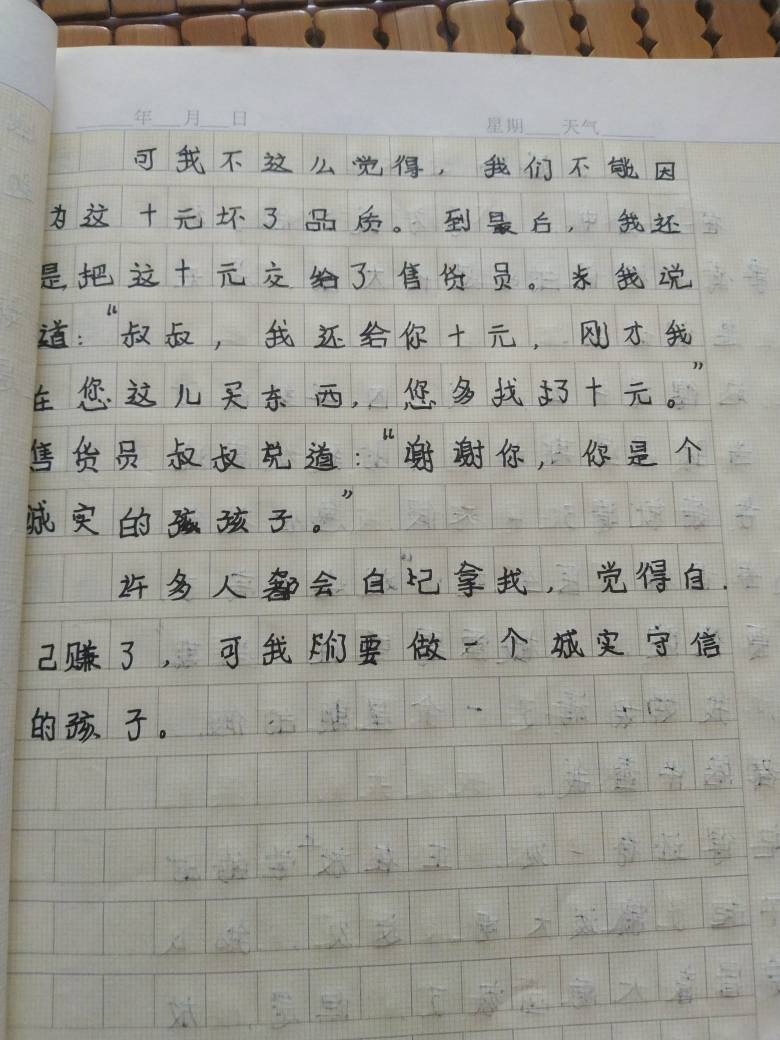 年 月 日 星期 天气
可我不这么觉得，我们不能因
为这十元坏了品质。到最后，我还
是把这十元交给了售货员。来我说
道：“叔叔，我还给你十元，刚才我
在您这儿买东西，您多找了十元。”
售货员叔叔说道：“谢谢你，你是个
诚实的孩孩子。”
许多人都会自记拿找，觉得自
己赚了，可我们要做一个诚实守信
的孩子。